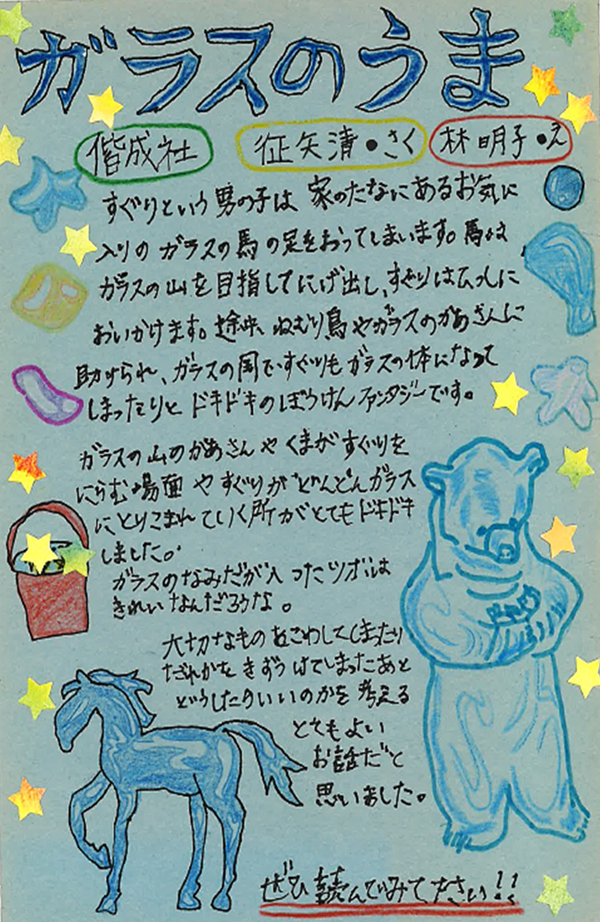 ガラスのうま
偕成社 征矢清・さく 林明子・え
すぐりという男の子は 家のたなにあるお気に
入りの ガラスの馬の足をおってしまいます。馬は
ガラスの山を目指してにげ出し、すぐりはひっしに
おいかけます。途中、ねむり鳥やガラスのかあさんに
助けられ、ガラスの国ですぐりもガラスの体になって
しまったりと ドキドキのぼうけんファンタジーです。
ガラスの山のかあさんやくまがすぐりを
にらむ場面やすぐりがどんどんガラス
にとりこまれていく所がとてもドキドキ
しました。
ガラスのなみだが入ったツボは
きれいなんだろうな。
大切なものをこわしてしまったり
だれかをきずつけてしまったあと
どうしたらいいのかを考える
とてもよい
お話だと
思いました。
ぜひ読んでみてください!!